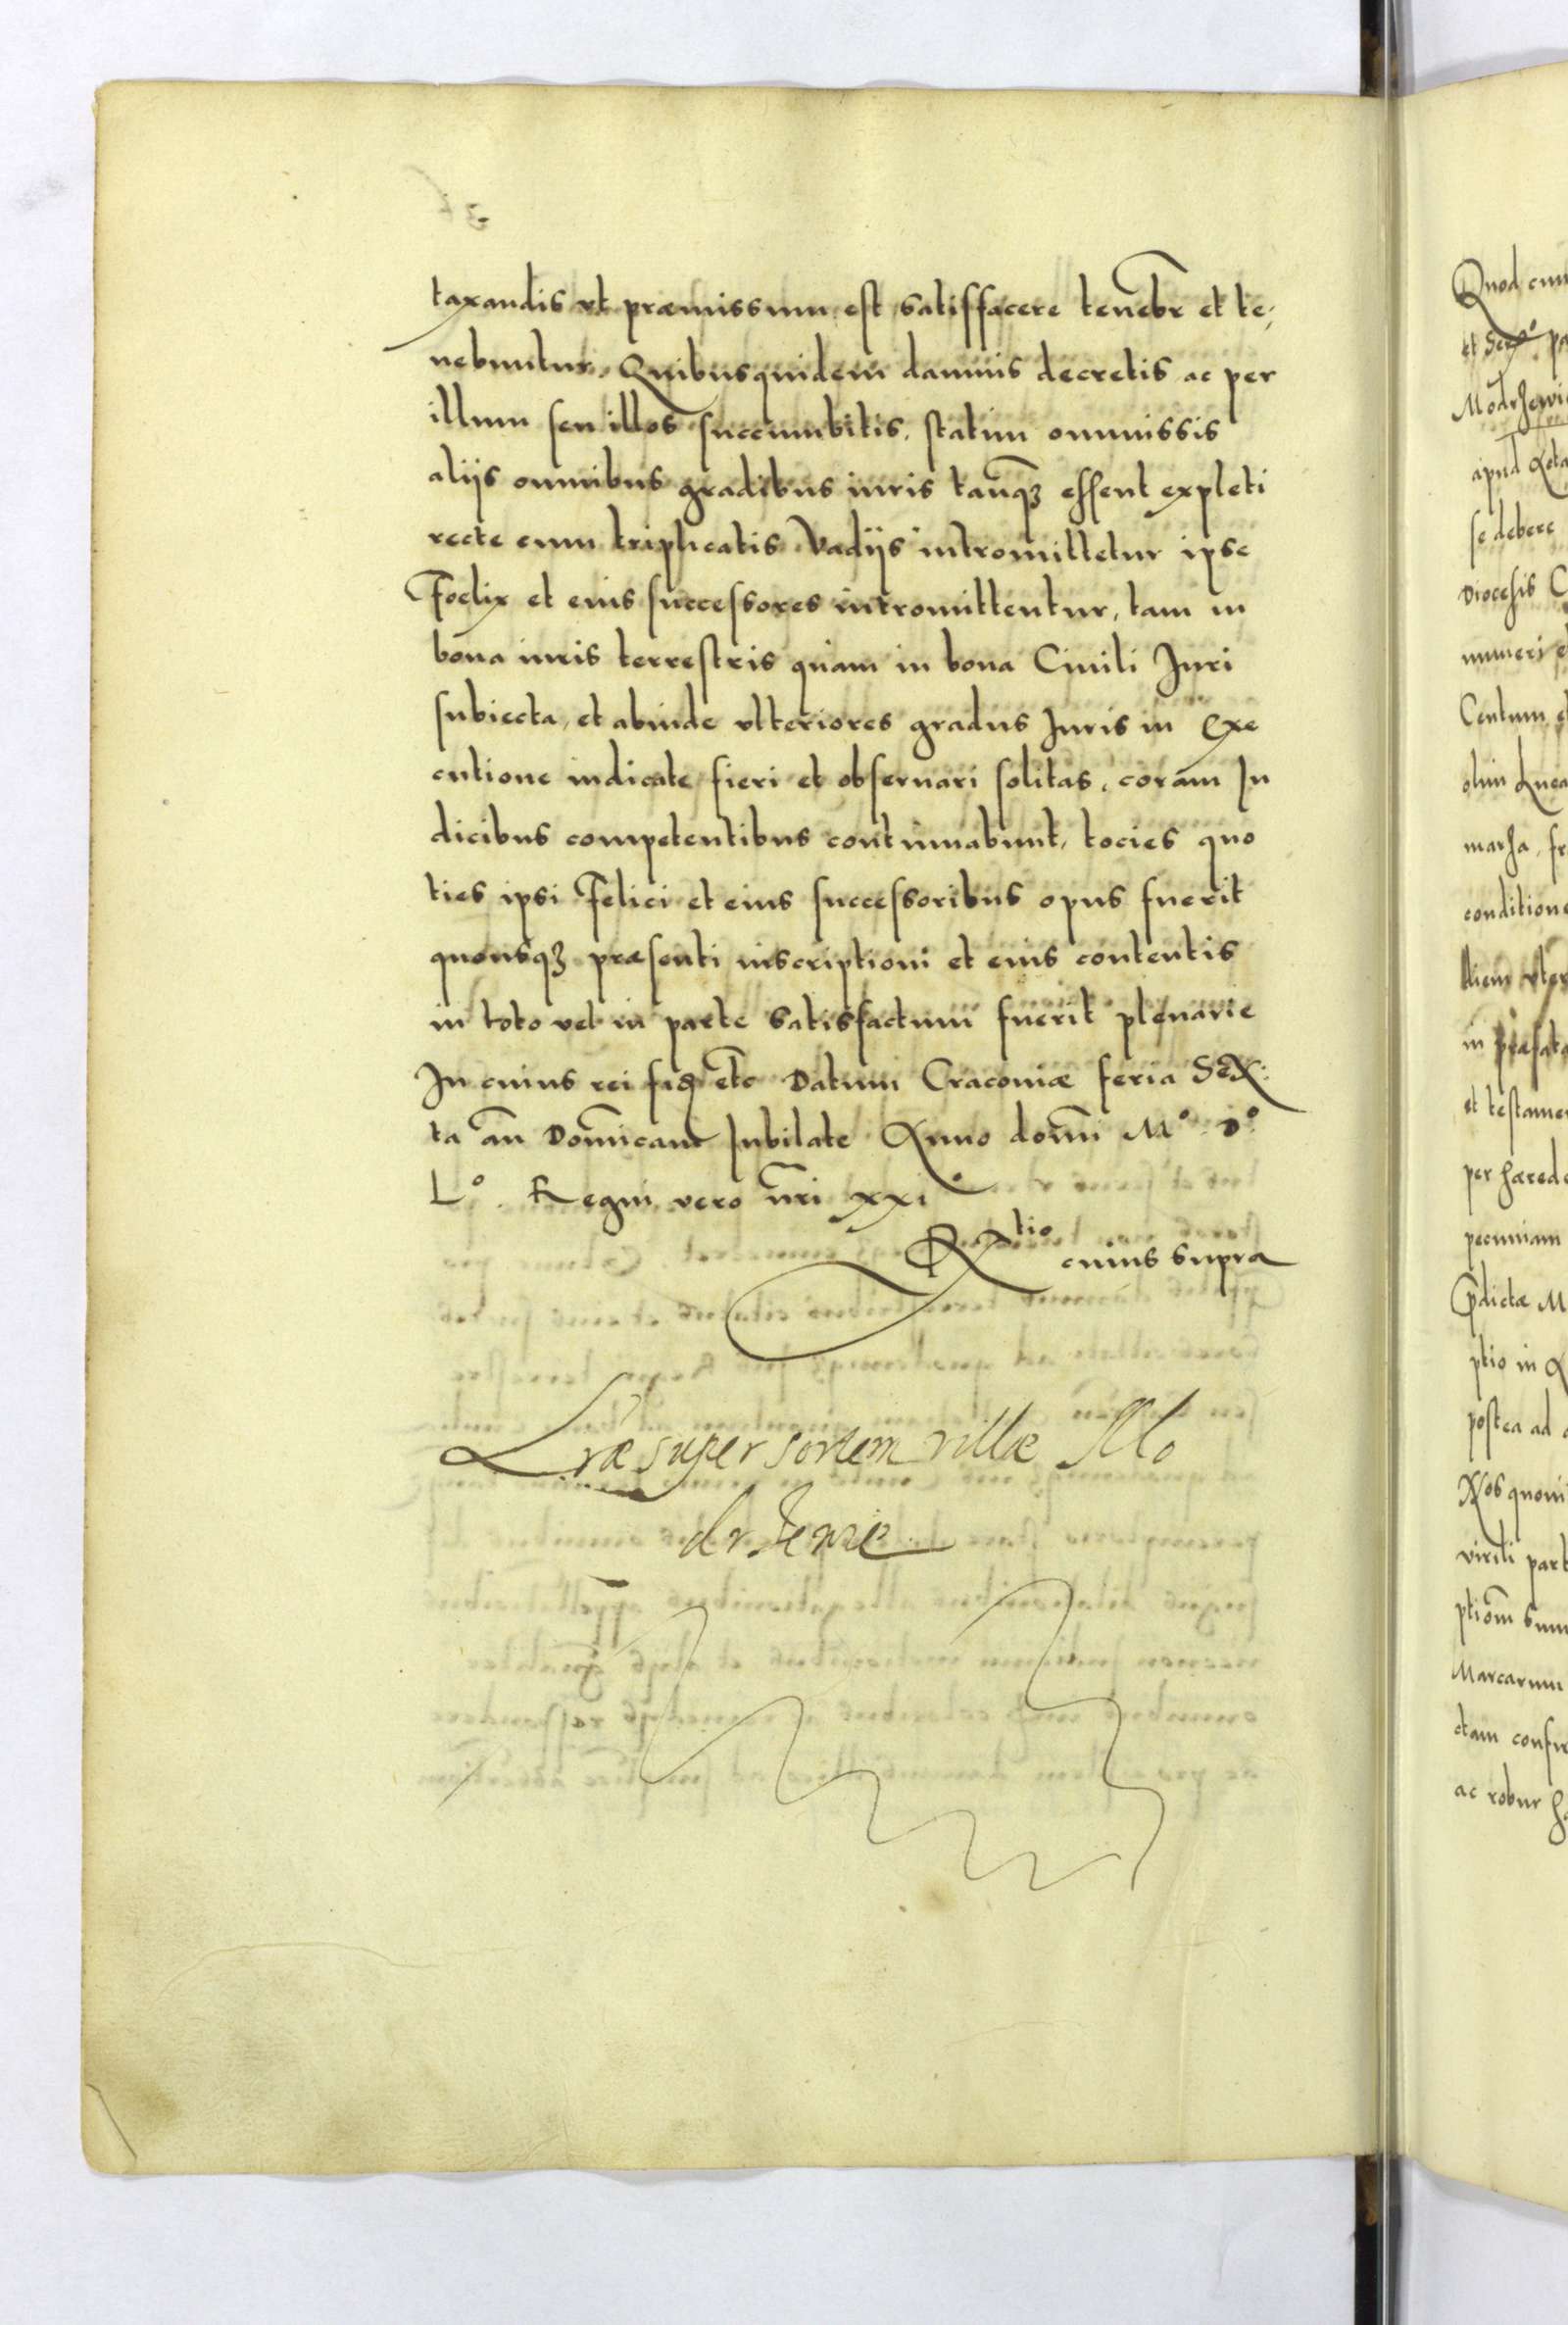 taxandis vt præmissum est satisffacere tenebr et te,
nebuntur. Quibusquidem damnis decretis ac per
illum seu illos succumbitis, statim ommissis
aliis omnibus gradibus iuris tanqꝫ essent expleti
recte cum triplicatis Vadiis intromittetur ipse
Foelix et eius successores intromittentur, tam in
bona iuris terrestris quam in bona Ciuili Juri
subiecta, et abinde vlteriores gradus Juris in Exe
cutione iudicate fieri et obseruari solitas, coram Ju
dicibus competentibus continuabunt, tocies quo
ties ipsi Felici et eius successoribus opus fuerit
quousqꝫ præsenti inscriptioni et eius contentis
in toto vel in parte satisfactum fuerit plenarie
In cuius rei fid etc Datum Cracouiæ feria Sex:
ta an Domicam Jubilate Anno domi Mº. Dº.
Lº. Regni vero nri xxiº
Rtio cuius supra
Lræ super sortem villæ Mo
drzewie
Quod cum
et
Modrzewi
apud
se debere
Diocesis C
numeri e
Centum e
olim Luca
marza, fr
conditione
diem vter
in præfata
et testamen
per hærede
pecuniam
Prdictæ M
ptio in
postea ad
Nos quoni
virili part
ptiom sum
Marcarum
ctam confir
ac robur ha